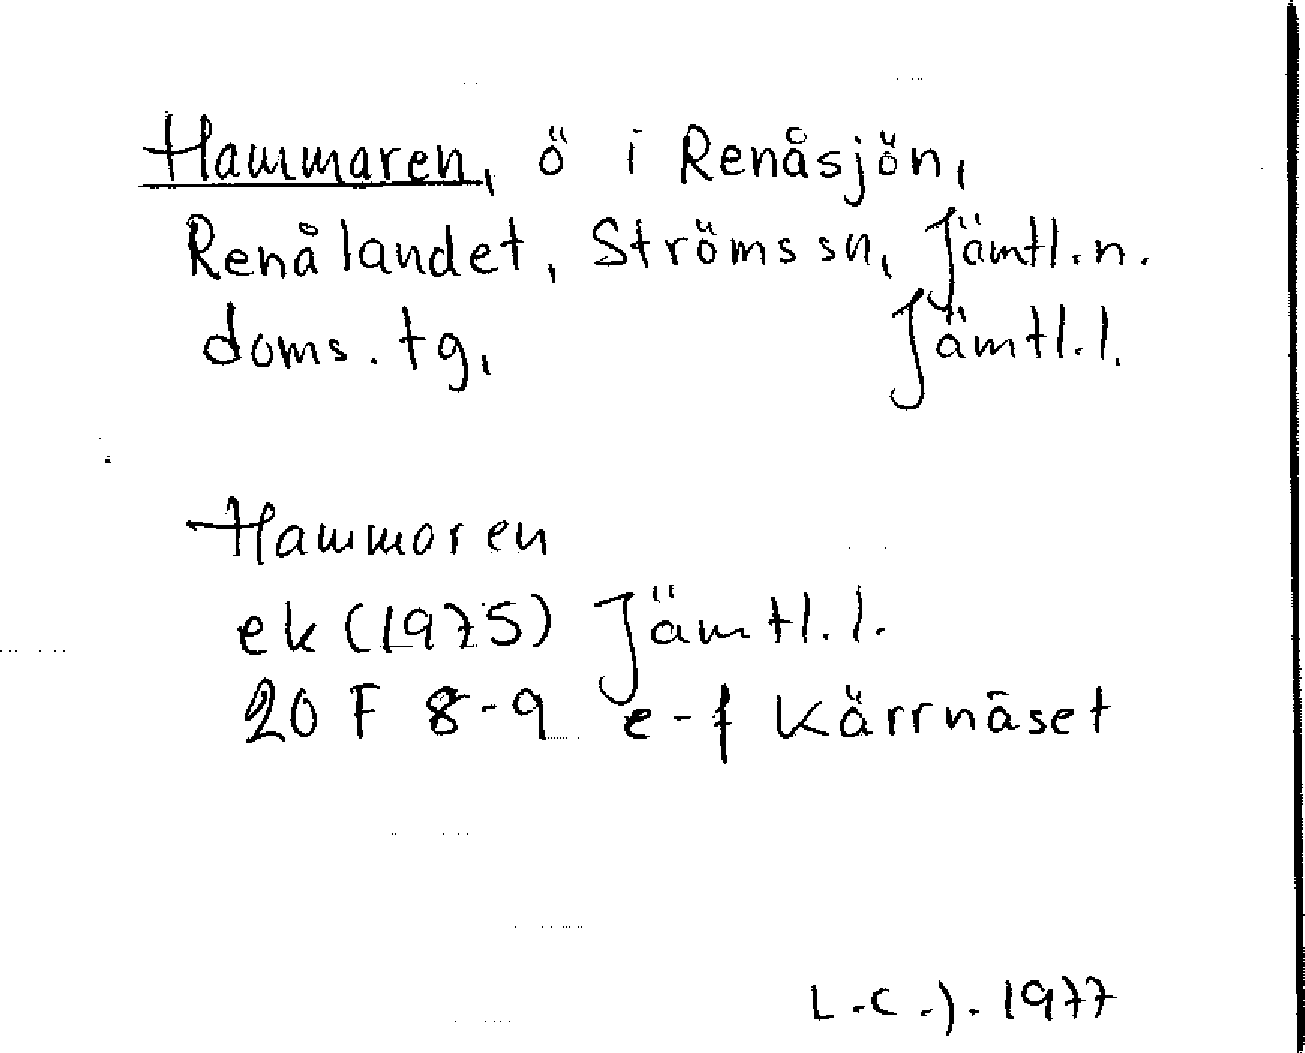 Hammaren, ö i Renåsjön,
Renålandet, Ströms sn, Jämtl. n.
doms. tg, Jämtl. l.
Hammaren
ek (1975) Jämtl. l.
20 F 8-9 e-f Kärrnäset
L.C.J. 1977